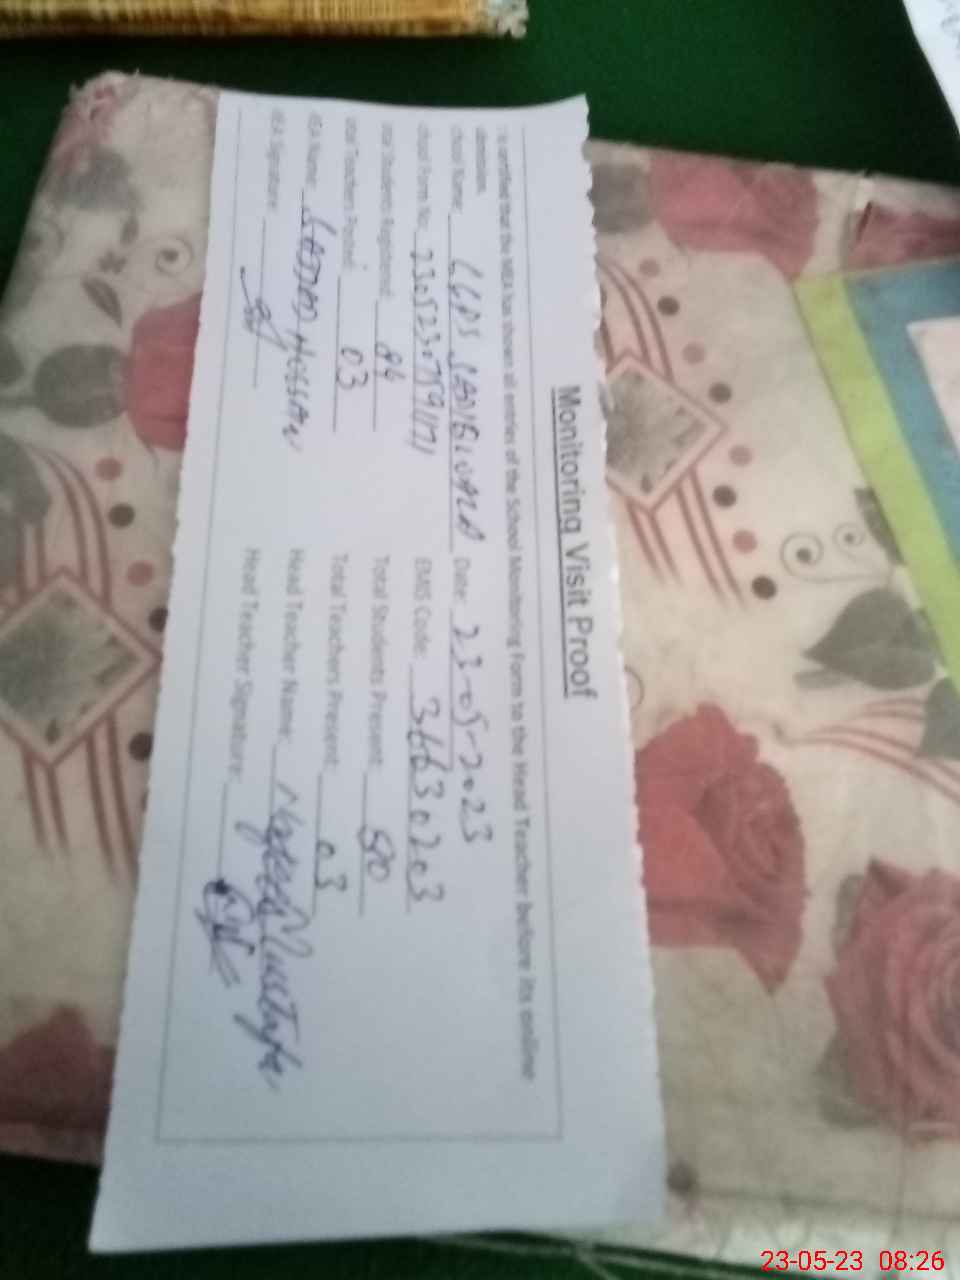 Monitoring Visit Proof
is certified that the MEA has shown all entries of the School Monitoring Form to the Head Teacher before its online
School Name: GGPS Date: 23-05-2023
School Form No: EMIS Code: 36630203
Total Students Registered: 84 Total Students Present: 50
Total Teachers Posted: 03 Total Teachers Present: 03
MEA Name: SAJJAD HUSSAIN Head Teacher Name: Mustafa
MEA Signature: Head Teacher Signature:
23-05-23 08:26